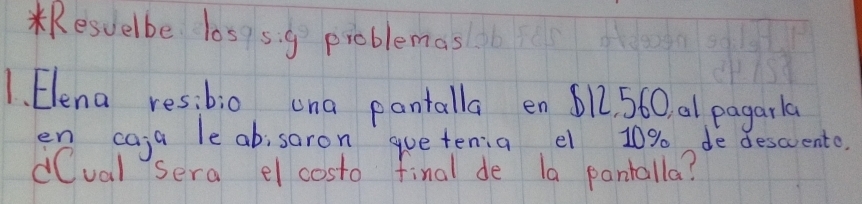 *Resuelbe los sig problemas
1. Elena resibio una pantalla en $12,560, al pagarla
en caja le abisaron que tenia el 10% de descuento.
¿Cual sera el costo final de la pantalla?